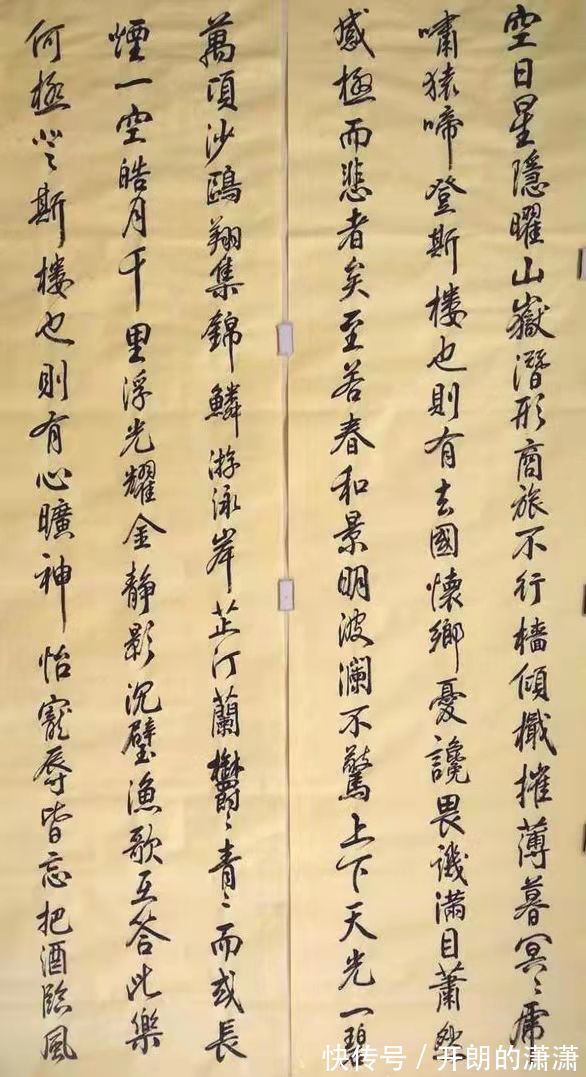 空日星隱曜山嶽潛形商旅不行檣傾檝摧薄暮冥〻虎
嘯猿啼登斯樓也則有去國懷鄉憂讒畏譏滿目蕭然
感極而悲者矣至若春和景明波瀾不驚上下天光一碧
萬頃沙鷗翔集錦鱗游泳岸芷汀蘭鬱〻青〻而或長
煙一空皓月千里浮光耀金靜影沉璧漁歌互答此樂
何極登斯樓也則有心曠神怡寵辱皆忘把酒臨風
快传号/开朗的潇潇